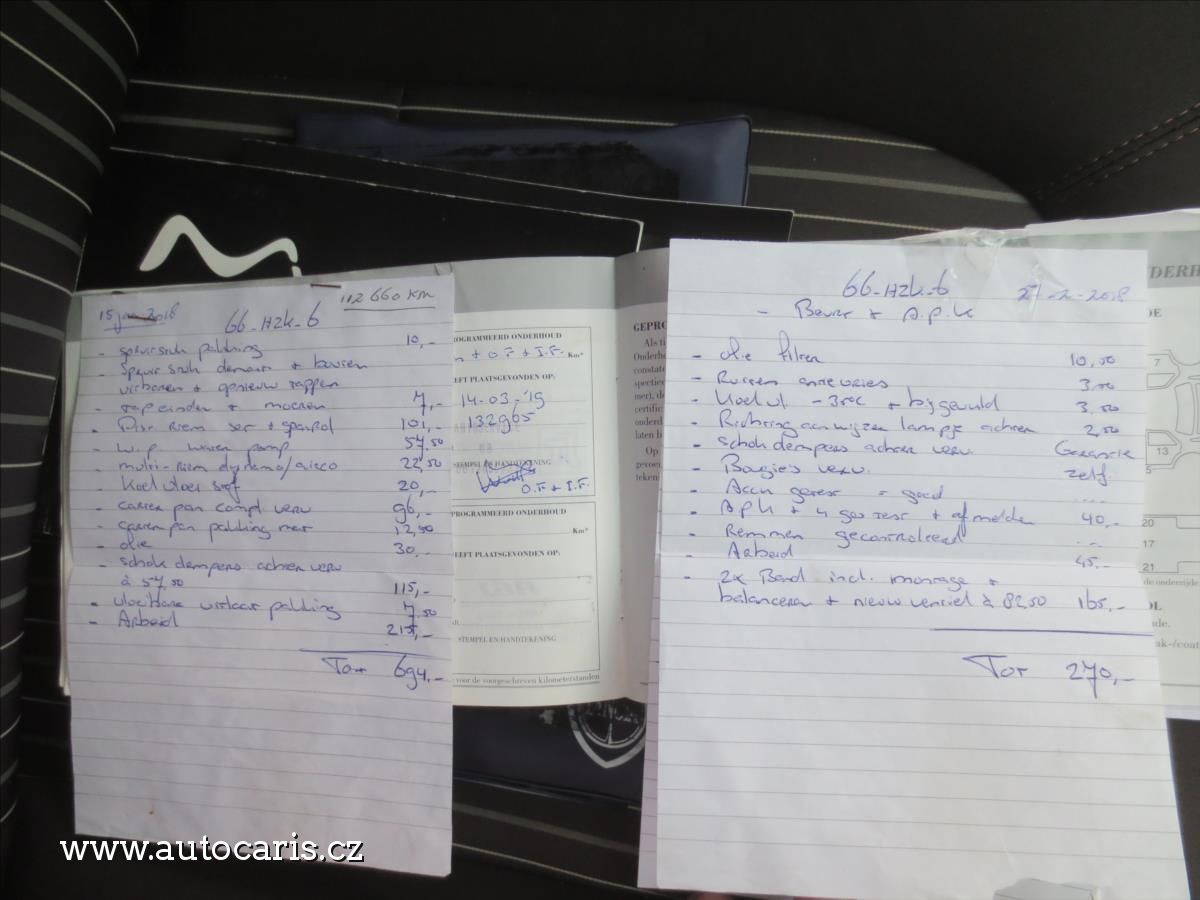 15 jan 2018
112660 km
66-HZK-6
- spruitstuk pakking 10,-
- spruitstuk demont + bouten
uitboren + opnieuw tappen
- tapeinden + moeren 7,-
- Distr. riem set + spanrol 101,-
- w.p. water pomp 57.50
- multi-riem dynamo/airco 22,50
- Koelvloeistof 20,-
- carter pan compl verv 96,-
- carter pan pakking met 12,50
- olie 30,-
- schokdempers achter verv
à 57,50 115,-
- vloeibare uitlaat pakking 7,50
- Arbeid 215,-
Tot 694,-
PROGRAMMEERD ONDERHOUD
+ O.F + I.F. Km*
EEFT PLAATSGEVONDEN OP:
14-03-'19
132965
STEMPEL EN HANDTEKENING
O.F + I.F.
PROGRAMMEERD ONDERHOUD
Km*
EEFT PLAATSGEVONDEN OP:
STEMPEL EN HANDTEKENING
voor de voorgeschreven kilometerstanden
GEPRO
Als ti
Onderho
constate
spectiee
mer), de
certific
onderd
laten b
Op
gevoer
tekeni
66-HZK-6
27-2-2018
- Beurt + A.P.K
- olie filter 10,50
- Ruiten 3,00
- Koelvl -35°C + bijgevuld 3,50
- Richtingaanwijzer lampje achter 2,50
- schokdempers achter verv. Garantie
- Bougies verv. zelf.
- Accu getest = goed ....
- APK + 4 gas test + afmelden 40,-
- Remmen gecontroleerd ...
- Arbeid 45,-
- 2x Band incl. montage +
balanceren + nieuw ventiel à 82,50 165,-
Tot 270,-
DERH
DE
7
1
15
13
5
20
17
21
de onderzijde
OL
de.
ak-/coat
www.autocaris.cz